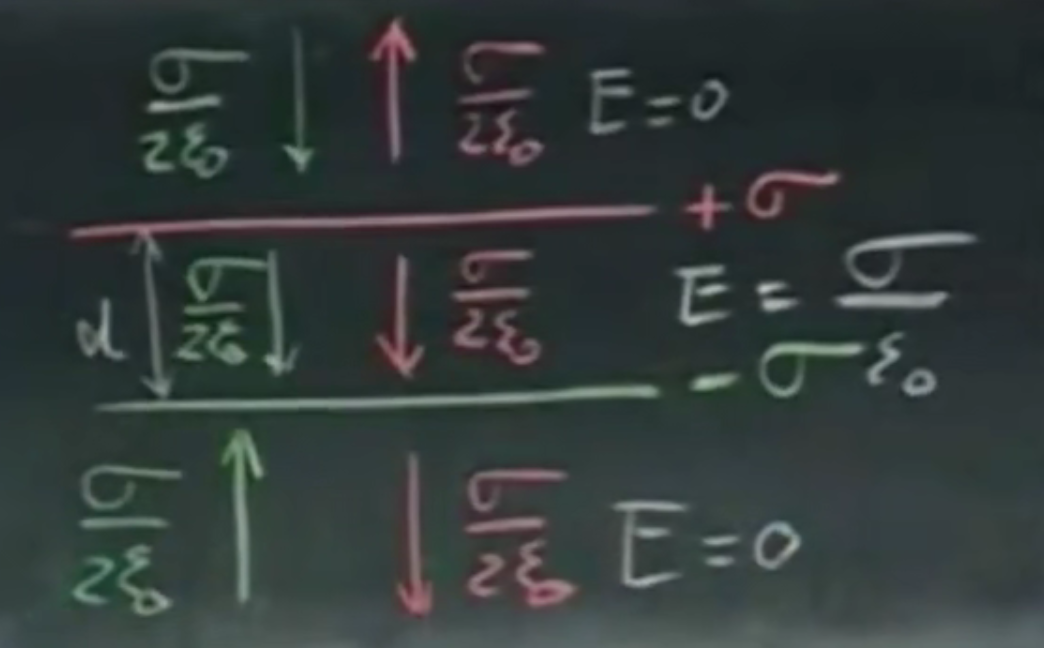 σ/2ε₀ ↓ ↑ σ/2ε₀ E=0
+σ
d σ/2ε₀ ↓ ↓ σ/2ε₀ E = σ/ε₀
-σ
σ/2ε₀ ↑ ↓ σ/2ε₀ E=0